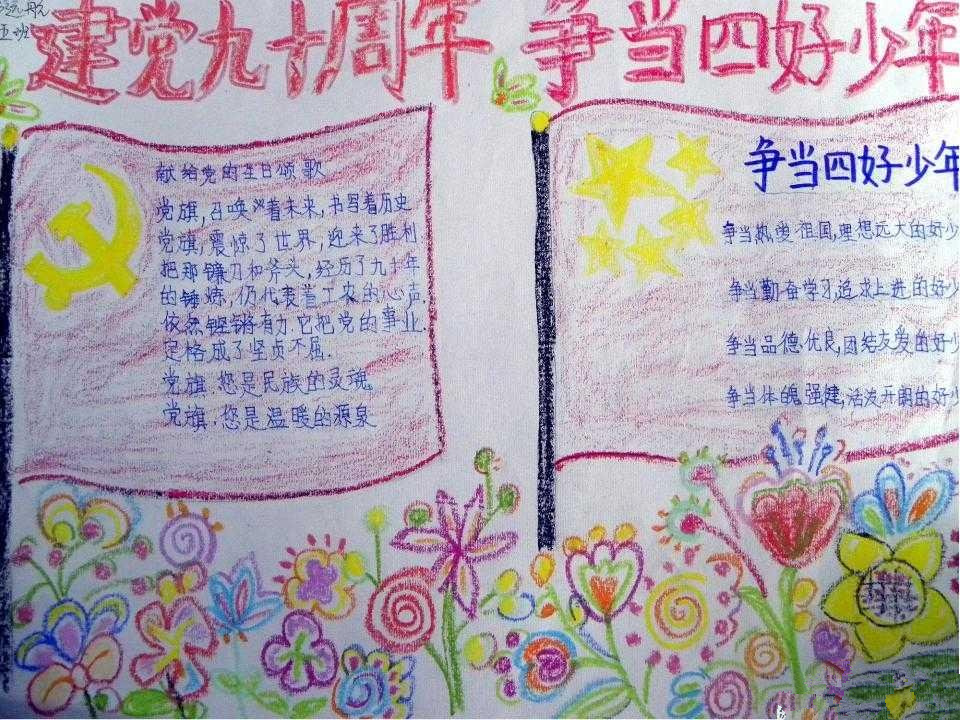 远航
五班
建党九十周年 争当四好少年
献给党的生日颂歌
党旗,召唤着未来,书写着历史
党旗,震惊了世界,迎来了胜利
把那镰刀和斧头,经历了九十年
的锤炼,仍代表着工农的心声.
依然铿锵有力.它把党的事业.
定格成了坚贞不屈.
党旗.您是民族的灵魂
党旗.您是温暖的源泉
争当四好少年
争当热爱祖国,理想远大的好少
争当勤奋学习,追求上进的好少
争当品德优良,团结友爱的好少
争当体魄强健,活泼开朗的好少